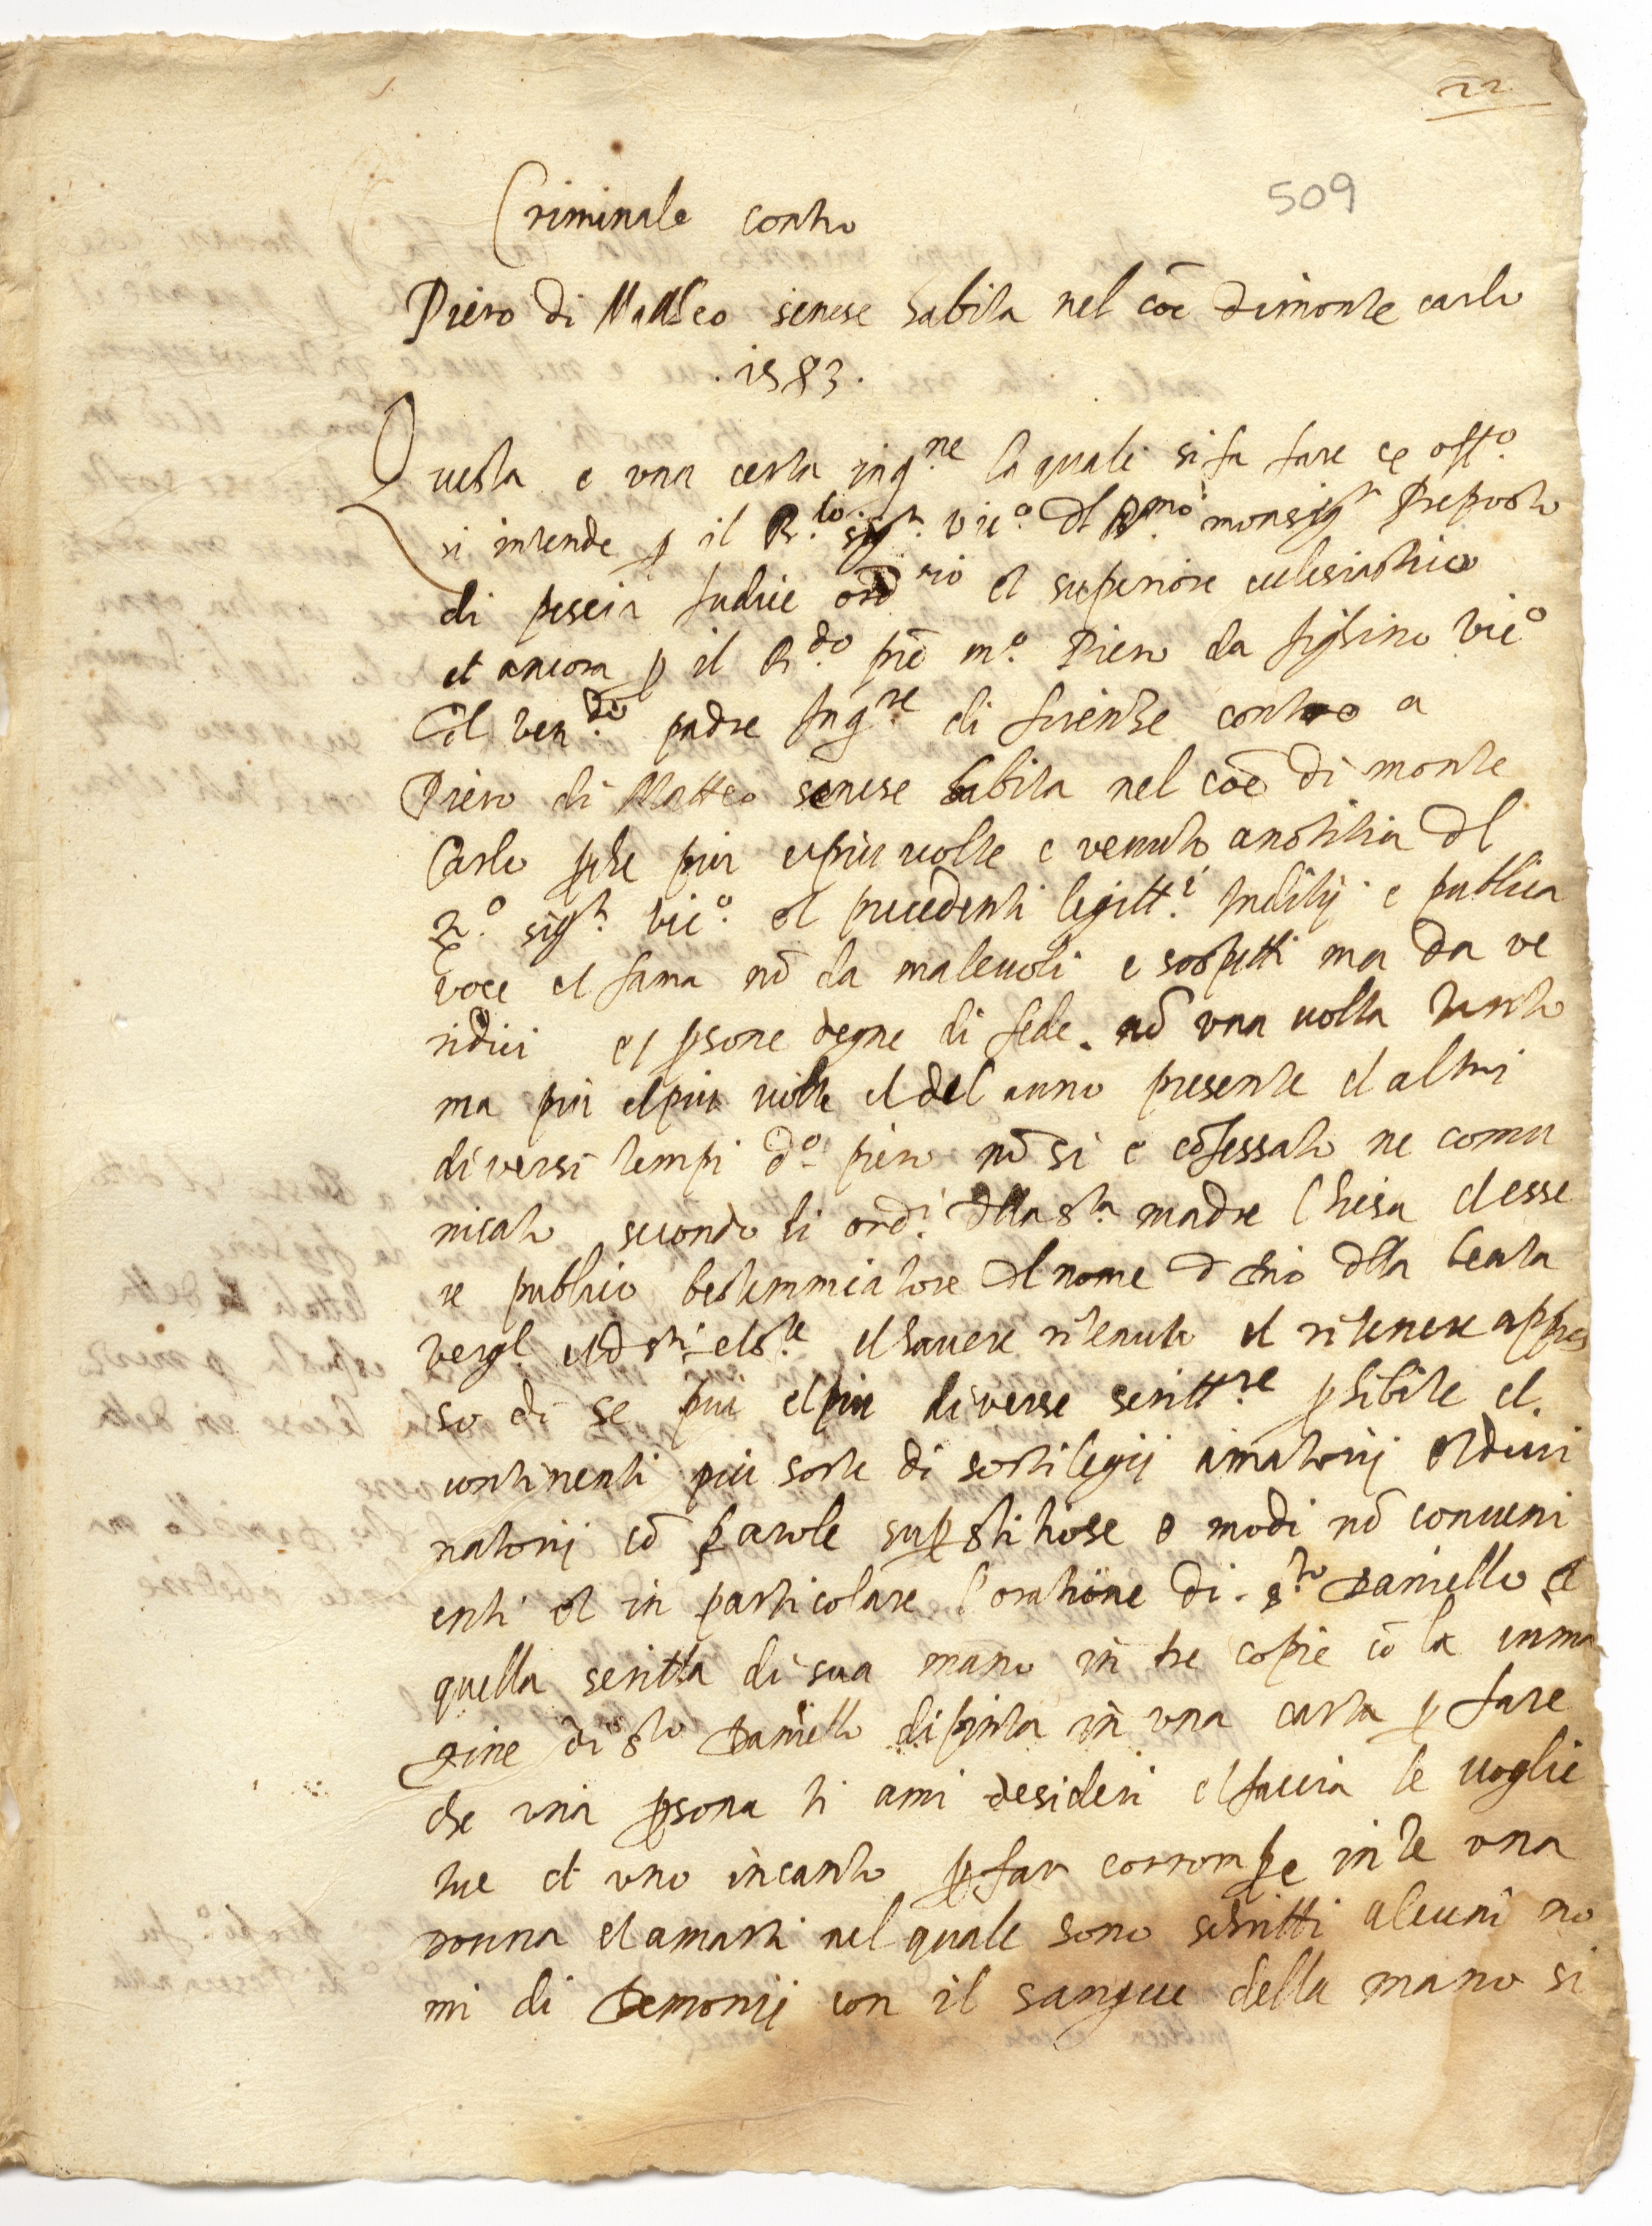 22
509
Criminale contro
Piero di Matteo senese habita nel coē di monte carlo
.1583.
Questa e una certa inq.ne la quale si fa fare ex off.o
si intende p il R.to sig.r vic.o dl R.mo monsig.r Preposto
di pescia Iudice ord.rio et superiore ecclesiastico
et ancora p il R.do prē m.o Piero da fighino vic.o
dl ven.do padre Inq.re di firenze contro a
Piero di Matteo senese habita nel coē di monte
Carlo pche piu e piu volte e venuto a notitia dl
sig.r vic.o et precedenti legitt.i Inditij e publica
voce et fama nō da malevoli e sospetti ma da ve
ridici et psone degne di fede. nō una volta tanto
ma piu et piu volte et del anno presente et altri
diversi tempi d.o piero nō si e cōfessato ne comu
nicato secondo li ord.i dlla s.ta madre Chiesa et esse
re publico bestemmiatore dl nome d dio dlla beata
verg.e et d s.ti et s.te et havere ritenuto et ritenere appres
so di se piu et piu diverse scritt.re phibite et
continenti piu sorte di sortilegij amatorij et divi
natorij cō parole supstitiose e modi nō conveni
enti et in particolare l'oratione di s.to Daniello et
quella scritta di sua mano in tre copie cō la inma
gine di s.to Daniello dipinta in una carta p fare
che una psona ti ami desideri et faccia le voglie
tue et uno incanto p far corrompe in te una
donna et amarti nel quale sono scritti alcuni no
mi di Demonij con il sangue della mano si